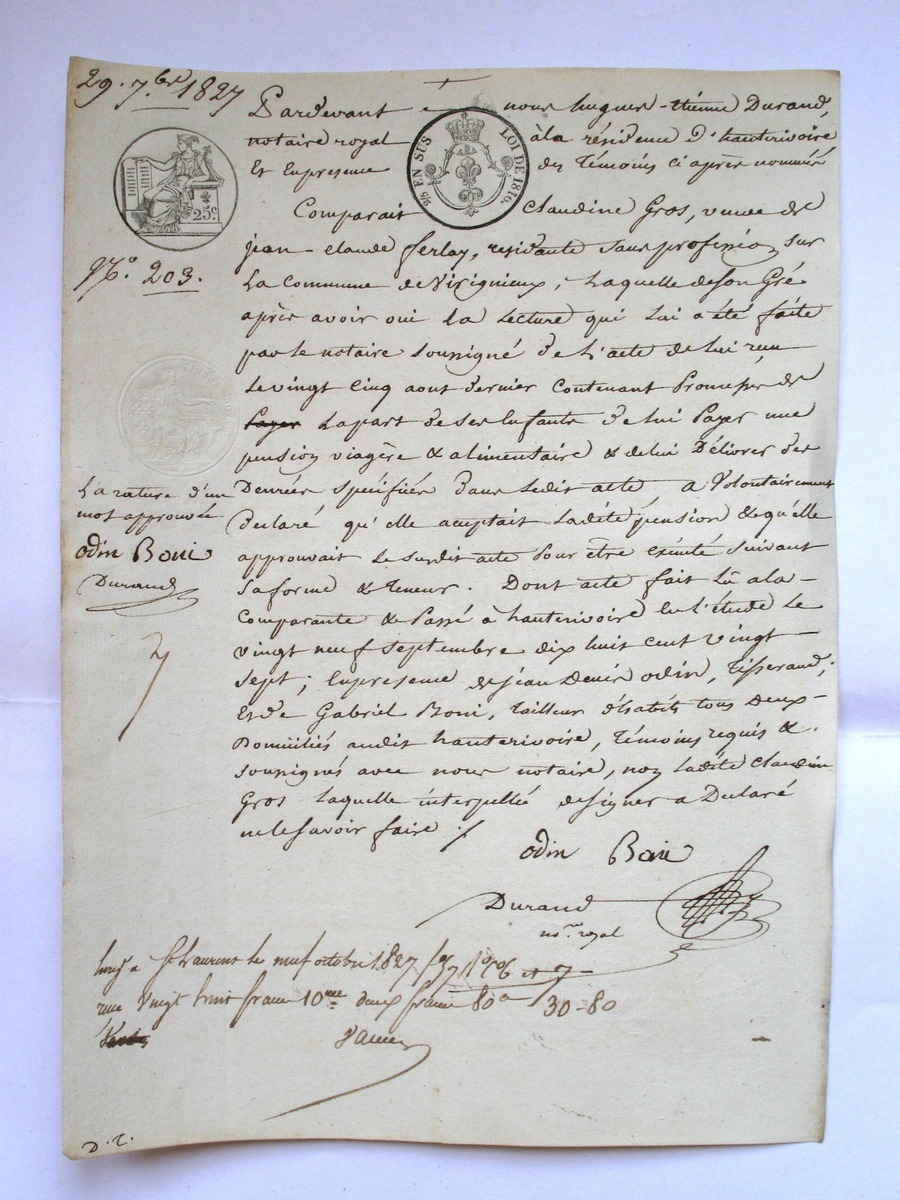 29. 7.bre 1827
Pardevant nous hugues-étiénne Durand,
notaire royal à la résidence d'hauterivoire
Et Enpresence des Témoins ci après nommés
2/5 EN SUS
LOI DE 1816.
25c
Comparait Claudine Gros, veuve de
jean-claude ferlay, residante sans profession sur
N.o 203.
La Commune de Virignieux; Laquelle deson Gré
après avoir oui la Lecture qui Lui a été faite
par le notaire soussigné de L'acte de Lui reçu
Le vingt Cinq aout dernier Contenant Promesse de
Payer Lapart de ses Enfants de lui Payer une
pension viagère & alimentaire & de lui Délivrer des
Denrées spécifiées dans Ledit acte, a Volontairement
Declaré qu'elle acceptait Ladite pension & qu'elle
approuvait Le susdit acte Pour être exécuté suivant
sa forme & teneur. Dont acte fait Lû a la
Comparante & Passé à hauterivoire En l'étude Le
vingt neuf septembre dix huit cent vingt
sept; Enpresence de jean Denis odin, Tisserand;
Et de Gabriel Boni, Tailleur d'habits tous Deux
Domiciliés audit hauterivoire, Témoins requis &
soussignés avec nous notaire, non Ladite Claudine
Gros Laquelle interpellée designer a Declaré
ne le savoir faire ./.
La rature d'un
mot approuvée
odin Boni
Durand
odin Boni
Durand
no.re royal
St Laurent le neuf octobre 1827
reçu Vingt huit francs 10me deux francs 80c 30-80
D. r.